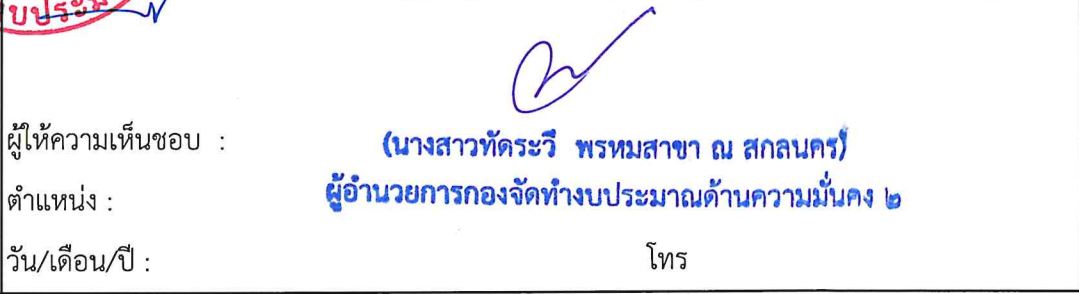 บประม
ผู้ให้ความเห็นชอบ :
(นางสาวทัดระวี พรหมสาขา ณ สกลนคร)
ตำแหน่ง :
ผู้อำนวยการกองจัดทำงบประมาณด้านความมั่นคง ๒
วัน/เดือน/ปี :
โทร